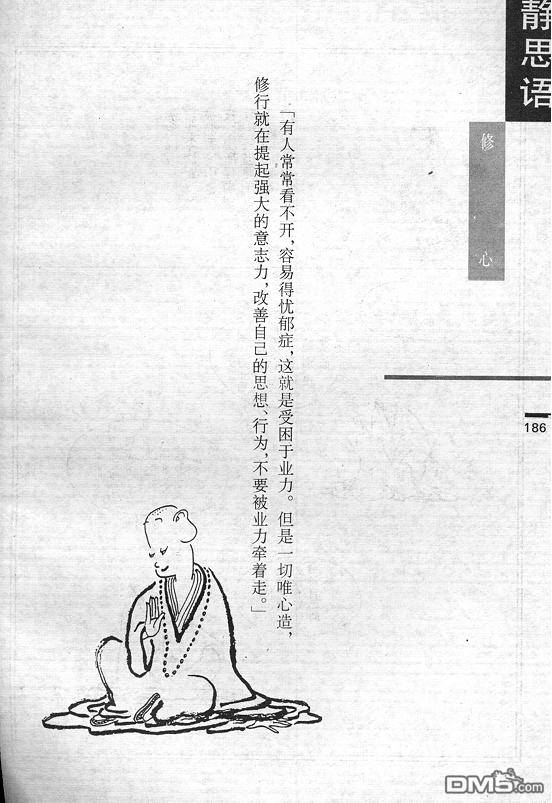 静思语
修心
186
「有人常常看不开，容易得忧郁症，这就是受困于业力。但是一切唯心造，
修行就在提起强大的意志力，改善自己的思想、行为，不要被业力牵着走。」
DM5.com